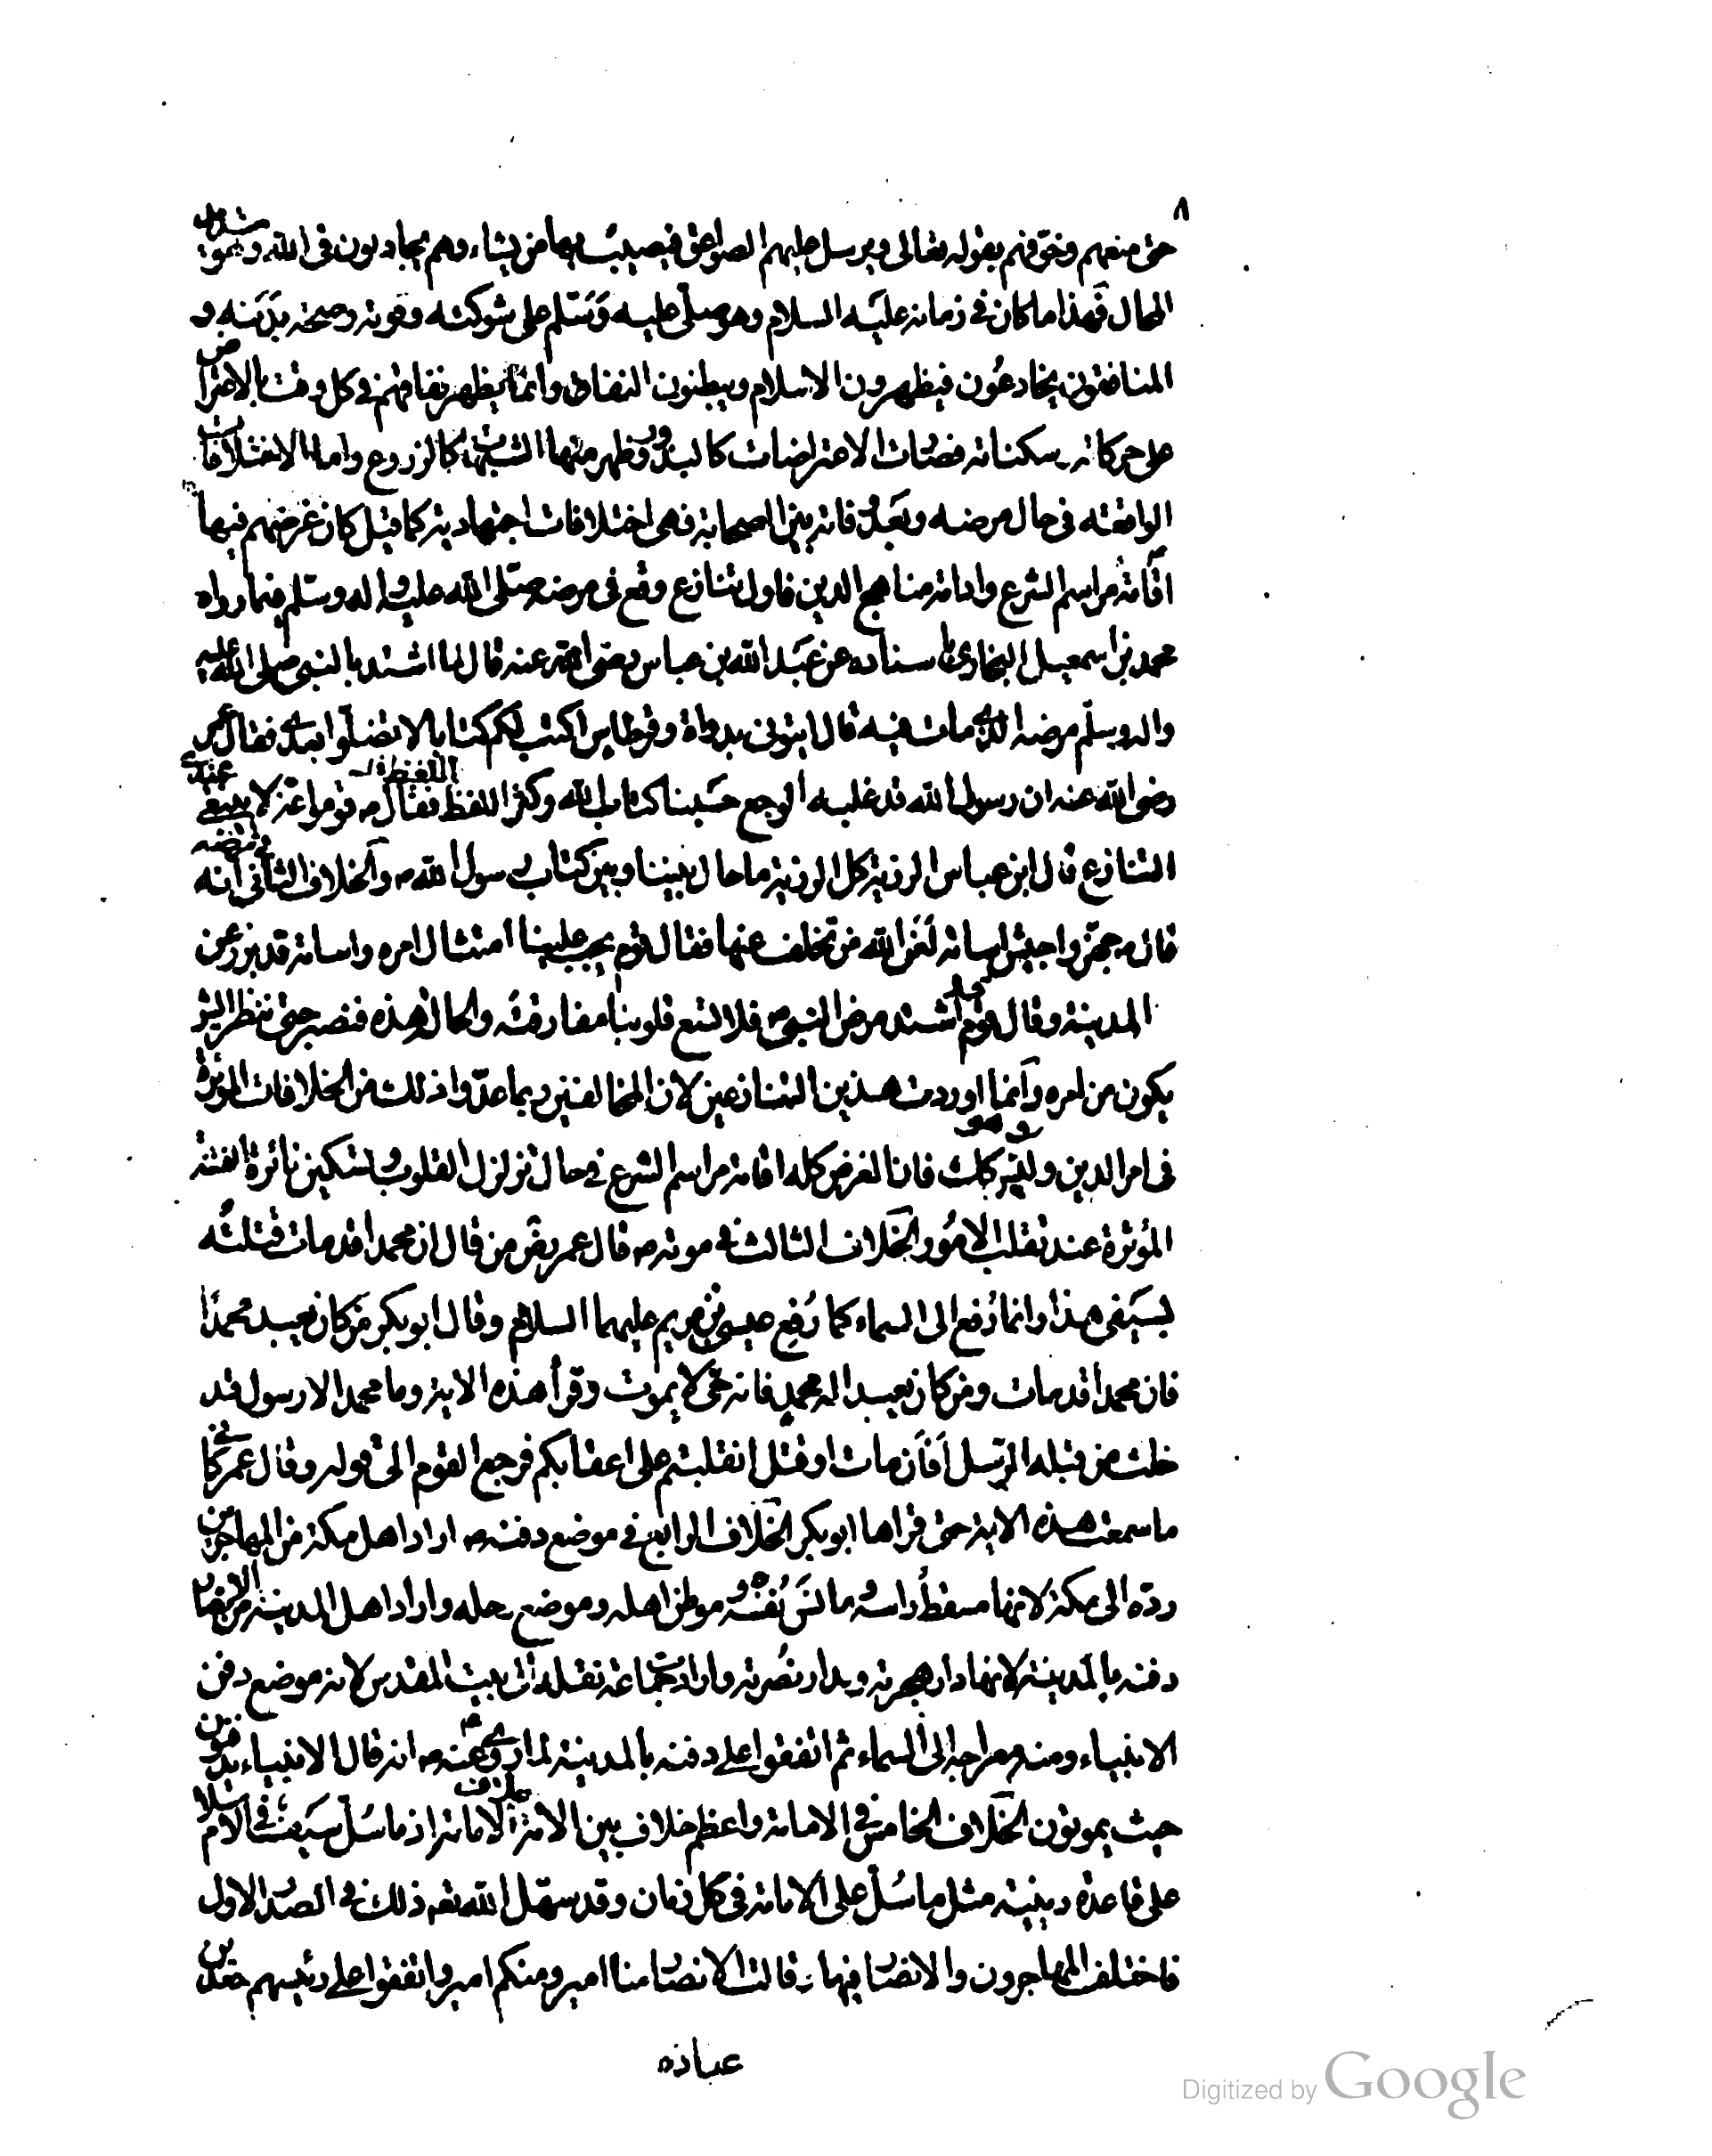 ٨
حتى منعهم وخوّفهم بقوله تعالى ويرسل عليهم الصواعق فيصيب بها من يشاء وهم يجادلون فى الله وهو شديد
المحال فهذا ما كان فى زمانه عليه السلام وهو صلّى عليه وسّلم على شوكته وقوته وصحة بدنه و
المنافقون يخادعون فيظهرون الاسلام ويبطنون النفاق وانما يظهر نفاقهم فى كل وقت بالاعتراض
على حركاته وسكناته فصارت الاعتراضات كالبذور وظهر منها الشبهات كالزروع واما الاختلافات
الواقعة فى حال مرضه وبعد وفاته بين الصحابة فهى اختلافات اجتهادية كما قيل كان غرضهم فيها
اقامة مراسم الشرع وادامة مناهج الدين فاول تنازع وقع فى مرضه صلّى الله عليه واله وسّلم فيما رواه
محمد بن اسمعيل البخارى باسناده عن عبد الله بن عباس رضى الله عنه قال لما اشتد بالنبى صلى الله عليه
واله وسلّم مرضه الذى مات فيه قال ايتونى بدواة وقرطاس اكتب لكم كتابا لا تضلّوا بعدى فقال عمر
رضى الله عنه ان رسول الله قد غلبه الوجع حسبنا كتاب الله وكثر اللغط فقال ص قوموا عنى لا ينبغى عندى
التنازع قال ابن عباس الرزية كل الرزية ما حال بيننا وبين كتاب رسول الله ص والخلاف الثانى فى مرضه انه
قال ص جهزوا جيش اسامة لعن الله من تخلف عنها فقال قوم يجب علينا امتثال امره واسامة قد برز عن
المدينة وقال قوم قد اشتد مرض النبى ص فلا تسع قلوبنا مفارقته والحال هذه فنصبر حتى ننظر ايش
يكون من امره وانما اوردت هذين التنازعين لان المخالفين ربما عدّوا ذلك من الخلافات المؤثرة
فى امر الدين وهو وليس كذلك فان الغرض كله اقامة مراسم الشرع فى حال تزلزل القلوب وتسكين نائرة الفتنة
المؤثرة عند تقلب الامور الخلاف الثالث فى موته ص قال عمر رض من قال ان محمدا قد مات قتلته
بسيفى هذا وانما رُفع الى السماء كما رُفع عيسى بن مريم عليهما السلام وقال ابو بكر من كان يعبد محمدًا
فان محمدا قد مات ومن كان يعبد اله محمد فانه حى لا يموت وقرأ هذه الاية وما محمد الا رسول قد
خلت من قبله الرّسل أفان مات او قتل انقلبتم على اعقابكم فرجع القوم الى قوله وقال عمر كانى
ما سمعت هذه الاية حتى قراها ابو بكر الخلاف الرابع فى موضع دفنه ص اراد اهل مكة من المهاجرين
ردّه الى مكة لانها مسقط راسه ومانس نفسه وموطن اهله وموضع رحله واراد اهل المدينة من الانصار
دفنه بالمدينة لانها دار هجرته ودار نصرته وارادت جماعة نقله الى بيت المقدس لانه موضع دفن
الانبياء ومنه معراجه الى السماء ثم اتفقوا على دفنه بالمدينة لما روى عنه ص انه قال الانبياء يدفنون
حيث يموتون الخلاف الخامس فى الامامة واعظم خلاف بين الامة خلاف الامامة اذ ما سُلّ سيف فى الاسلام
على قاعدة دينية مثل ما سُلّ على الامامة فى كل زمان وقد سهّل الله تعه ذلك فى الصدر الاول
فاختلف المهاجرون والانصار فيها وقالت الانصار منا امير ومنكم امير واتفقوا على رئيسهم سعد بن
عبادة
Digitized by Google